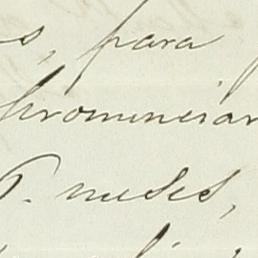 s, para
pronunciar
6. meses,